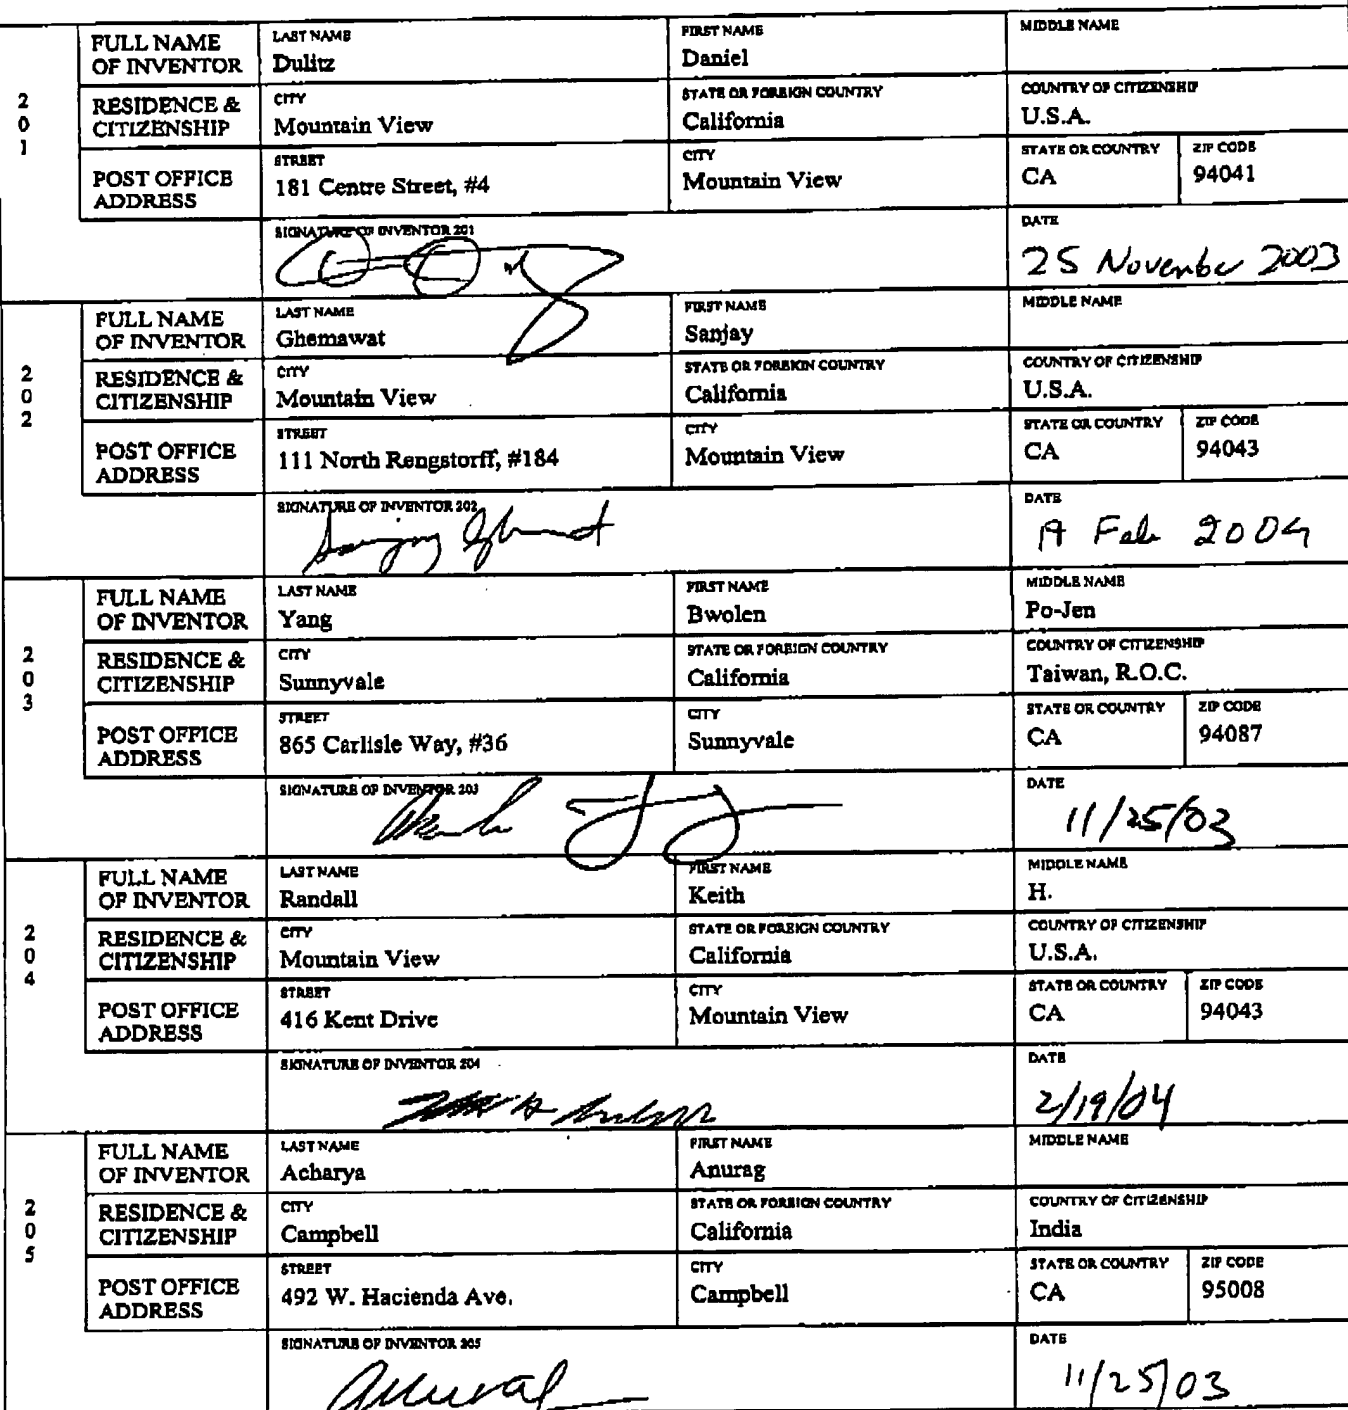 FULL NAME OF INVENTOR LAST NAME Dulitz FIRST NAME Daniel MIDDLE NAME
201
RESIDENCE & CITIZENSHIP CITY Mountain View STATE OR FOREIGN COUNTRY California COUNTRY OF CITIZENSHIP U.S.A.
POST OFFICE ADDRESS STREET 181 Centre Street, #4 CITY Mountain View STATE OR COUNTRY CA ZIP CODE 94041
SIGNATURE OF INVENTOR 201 DATE 25 November 2003
FULL NAME OF INVENTOR LAST NAME Ghemawat FIRST NAME Sanjay MIDDLE NAME
202
RESIDENCE & CITIZENSHIP CITY Mountain View STATE OR FOREIGN COUNTRY California COUNTRY OF CITIZENSHIP U.S.A.
POST OFFICE ADDRESS STREET 111 North Rengstorff, #184 CITY Mountain View STATE OR COUNTRY CA ZIP CODE 94043
SIGNATURE OF INVENTOR 202 Sanjay Ghemawat DATE Feb 2004
FULL NAME OF INVENTOR LAST NAME Yang FIRST NAME Bwolen MIDDLE NAME Po-Jen
203
RESIDENCE & CITIZENSHIP CITY Sunnyvale STATE OR FOREIGN COUNTRY California COUNTRY OF CITIZENSHIP Taiwan, R.O.C.
POST OFFICE ADDRESS STREET 865 Carlisle Way, #36 CITY Sunnyvale STATE OR COUNTRY CA ZIP CODE 94087
SIGNATURE OF INVENTOR 203 DATE 11/25/03
FULL NAME OF INVENTOR LAST NAME Randall FIRST NAME Keith MIDDLE NAME H.
204
RESIDENCE & CITIZENSHIP CITY Mountain View STATE OR FOREIGN COUNTRY California COUNTRY OF CITIZENSHIP U.S.A.
POST OFFICE ADDRESS STREET 416 Kent Drive CITY Mountain View STATE OR COUNTRY CA ZIP CODE 94043
SIGNATURE OF INVENTOR 204 DATE 2/19/04
FULL NAME OF INVENTOR LAST NAME Acharya FIRST NAME Anurag MIDDLE NAME
205
RESIDENCE & CITIZENSHIP CITY Campbell STATE OR FOREIGN COUNTRY California COUNTRY OF CITIZENSHIP India
POST OFFICE ADDRESS STREET 492 W. Hacienda Ave. CITY Campbell STATE OR COUNTRY CA ZIP CODE 95008
SIGNATURE OF INVENTOR 205 DATE 11/25/03